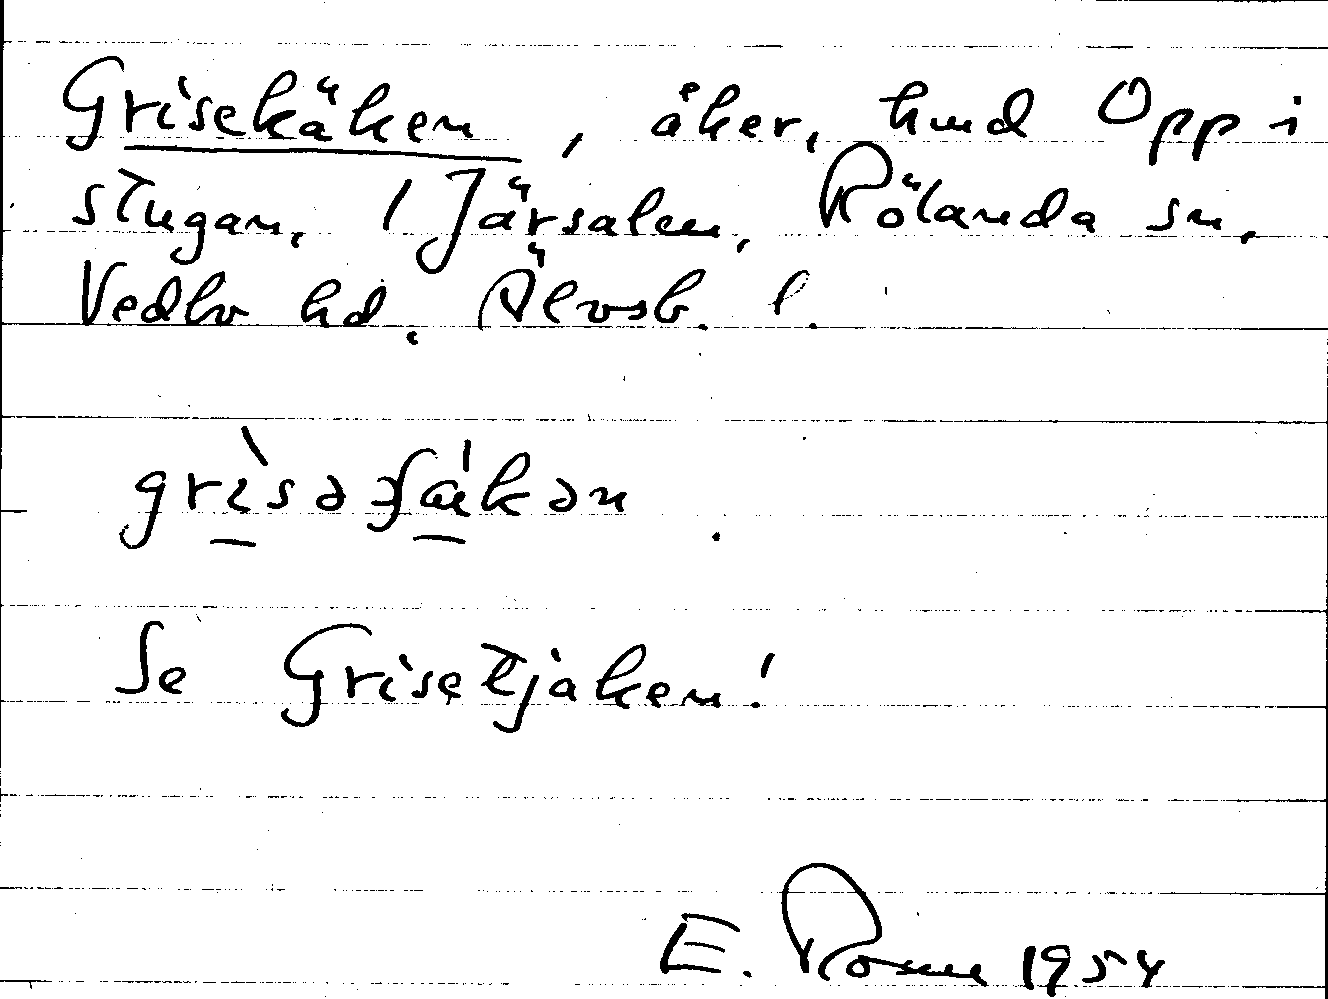 Grisekäken, åker, hmd Opp i
stugan, 1 Järsalem, Rölanda sn,
Vedbo hd. Älvsb. l.
grìsəʃäkən.
Se Grisetjäken!
E. Rosell 1954